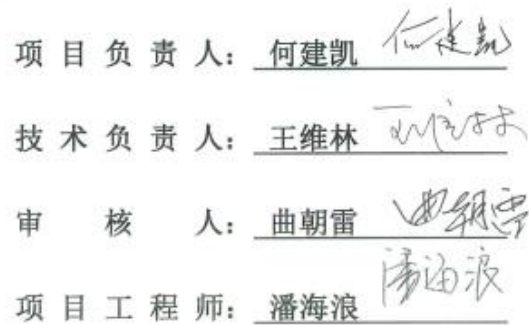 项目负责人：何建凯 何建凯
技术负责人：王维林 王维林
审核人：曲朝雷 曲朝雷
项目工程师：潘海浪 潘海浪